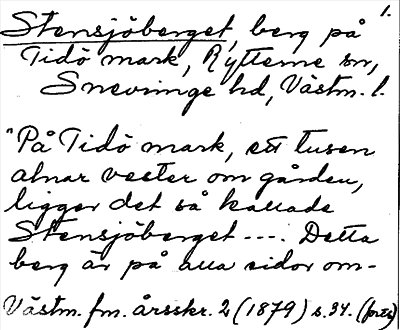 1.
Stensjöberget, berg på
Tidö mark, Rytterne sn,
Snevringe hd, Västm. l.
"På Tidö mark, ett tusen
alnar vester om gården,
ligger det så kallade
Stensjöberget ----. Detta
berg är på alla sidor om-
Västm. fm. årsskr. 2 (1879) s. 34. (forts)